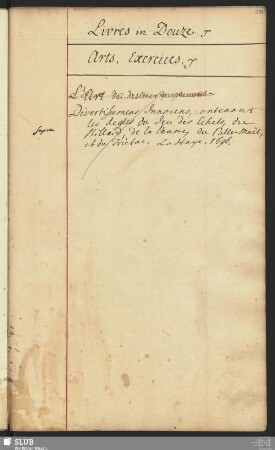 Livres in Douze.
Arts, Exercices.
L'Art de dessiner proprement
Divertissemens Innocens, contenant
les Regles du Jeu des Echets, du
Billard, de la Paume, du Palle-Mail,
et du Trictrac. La Haye. 1696.
SLUB
Wir führen Wissen.